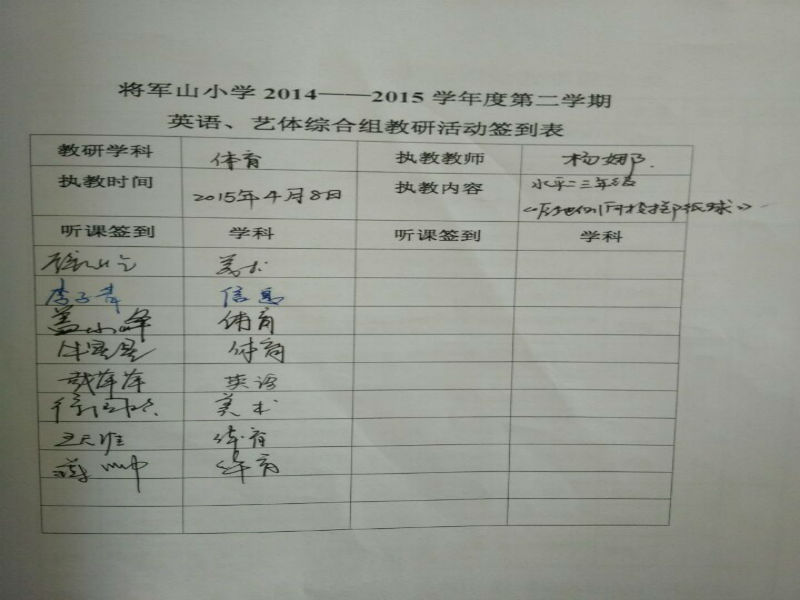 将军山小学 2014——2015 学年度第二学期
英语、艺体综合组教研活动签到表
教研学科 体育 执教教师 杨娜
执教时间 2015年4月8日 执教内容 水平二三年级
投掷 纸球
听课签到 学科 听课签到 学科
美术
李子青 信息
盖小峰 体育
牛星星 体育
戴萍萍 英语
徐 美术
王天雅 体育
蒋 体育